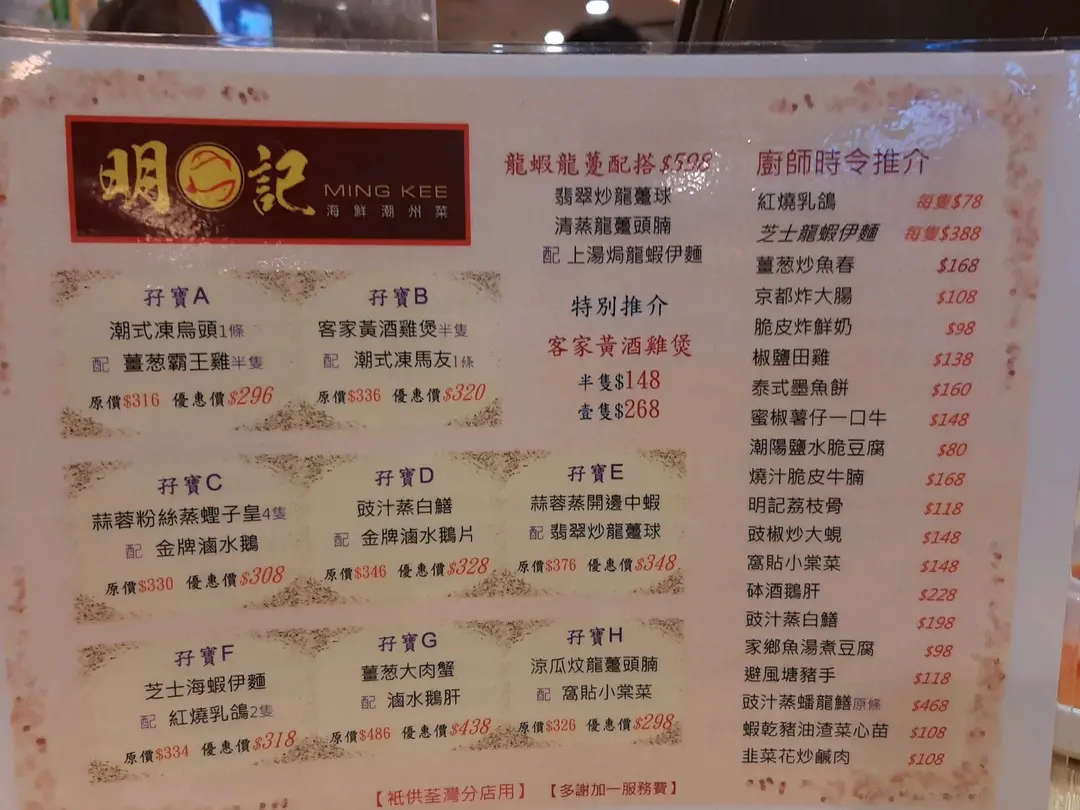 明記
MING KEE
海鮮潮州菜
孖寶A
潮式凍烏頭1條
配 薑葱霸王雞半隻
原價$316 優惠價$296
孖寶B
客家黃酒雞煲半隻
配 潮式凍馬友1條
原價$336 優惠價$320
孖寶C
蒜蓉粉絲蒸蟶子皇4隻
配 金牌滷水鵝
原價$330 優惠價$308
孖寶D
豉汁蒸白鱔
配 金牌滷水鵝片
原價$346 優惠價$328
孖寶E
蒜蓉蒸開邊中蝦
配 翡翠炒龍躉球
原價$376 優惠價$348
孖寶F
芝士海蝦伊麵
配 紅燒乳鴿2隻
原價$334 優惠價$318
孖寶G
薑葱大肉蟹
配 滷水鵝肝
原價$486 優惠價$438
孖寶H
涼瓜炆龍躉頭腩
配 窩貼小棠菜
原價$326 優惠價$298
龍蝦龍躉配搭$598
翡翠炒龍躉球
清蒸龍躉頭腩
配 上湯焗龍蝦伊麵
特別推介
客家黃酒雞煲
半隻$148
壹隻$268
廚師時令推介
紅燒乳鴿 每隻$78
芝士龍蝦伊麵 每隻$388
薑葱炒魚春 $168
京都炸大腸 $108
脆皮炸鮮奶 $98
椒鹽田雞 $138
泰式墨魚餅 $160
蜜椒薯仔一口牛 $148
潮陽鹽水脆豆腐 $80
燒汁脆皮牛腩 $168
明記荔枝骨 $118
豉椒炒大蜆 $148
窩貼小棠菜 $148
砵酒鵝肝 $228
豉汁蒸白鱔 $198
家鄉魚湯煮豆腐 $98
避風塘豬手 $118
豉汁蒸蟠龍鱔原條 $468
蝦乾豬油渣菜心苗 $108
韭菜花炒鹹肉 $108
【祇供荃灣分店用】 【多謝加一服務費】